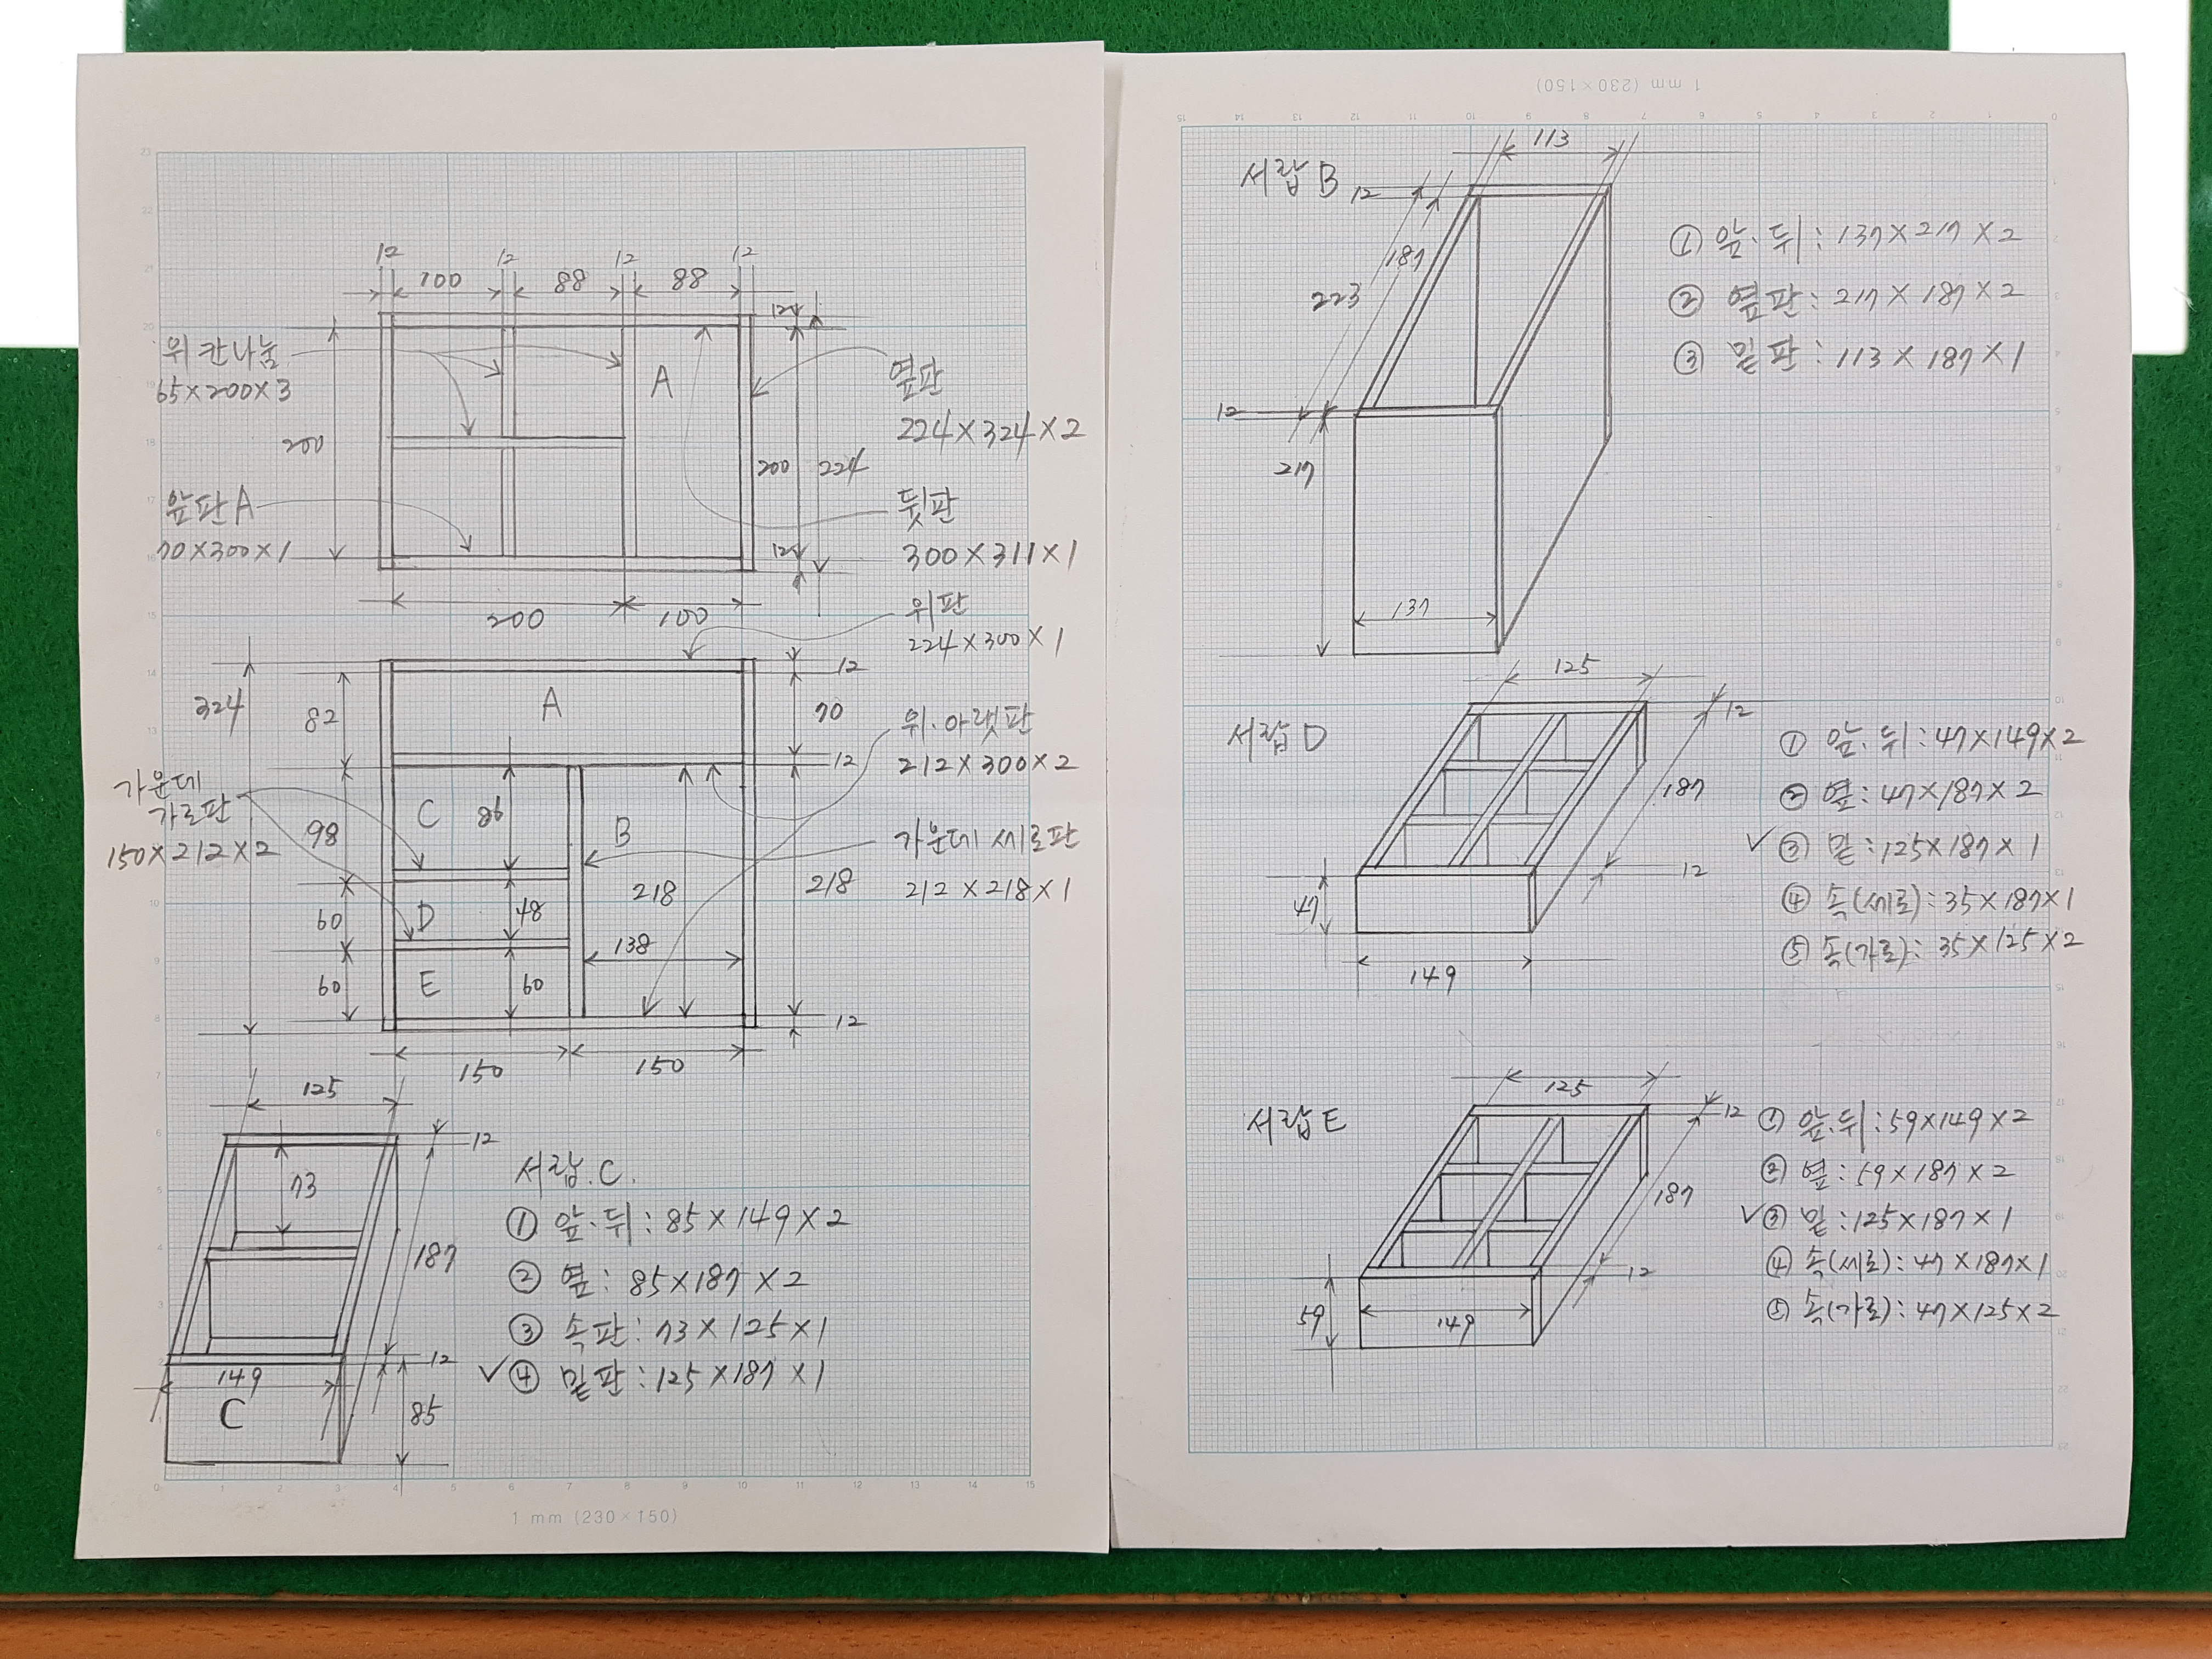 12
12
12
12
100
88
88
12
위 칸나눔
65×200×3
A
옆판
224×324×2
200
200
224
앞판 A
70×300×1
뒷판
300×311×1
12
200
100
위판
224×300×1
12
324
82
A
70
위.아랫판
212×300×2
12
가운데
가로판
150×212×2
98
C
86
B
가운데 세로판
212×218×1
218
218
60
D
48
138
60
E
60
12
150
150
125
12
73
187
서랍.C.
① 앞.뒤:85×149×2
② 옆:85×187×2
③ 속판:73×125×1
✓④ 밑판:125×187×1
12
149
C
85
1 mm (230×150)
1 mm (230×150)
서랍 B
113
12
187
223
12
217
137
① 앞.뒤:137×217×2
② 옆판:217×187×2
③ 밑판:113×187×1
서랍 D
125
12
187
12
47
149
① 앞.뒤:47×149×2
② 옆:47×187×2
✓③ 밑:125×187×1
④ 속(세로):35×187×1
⑤ 속(가로):35×125×2
서랍 E
125
12
187
12
59
149
① 앞.뒤:59×149×2
② 옆:59×187×2
✓③ 밑:125×187×1
④ 속(세로):47×187×1
⑤ 속(가로):47×125×2